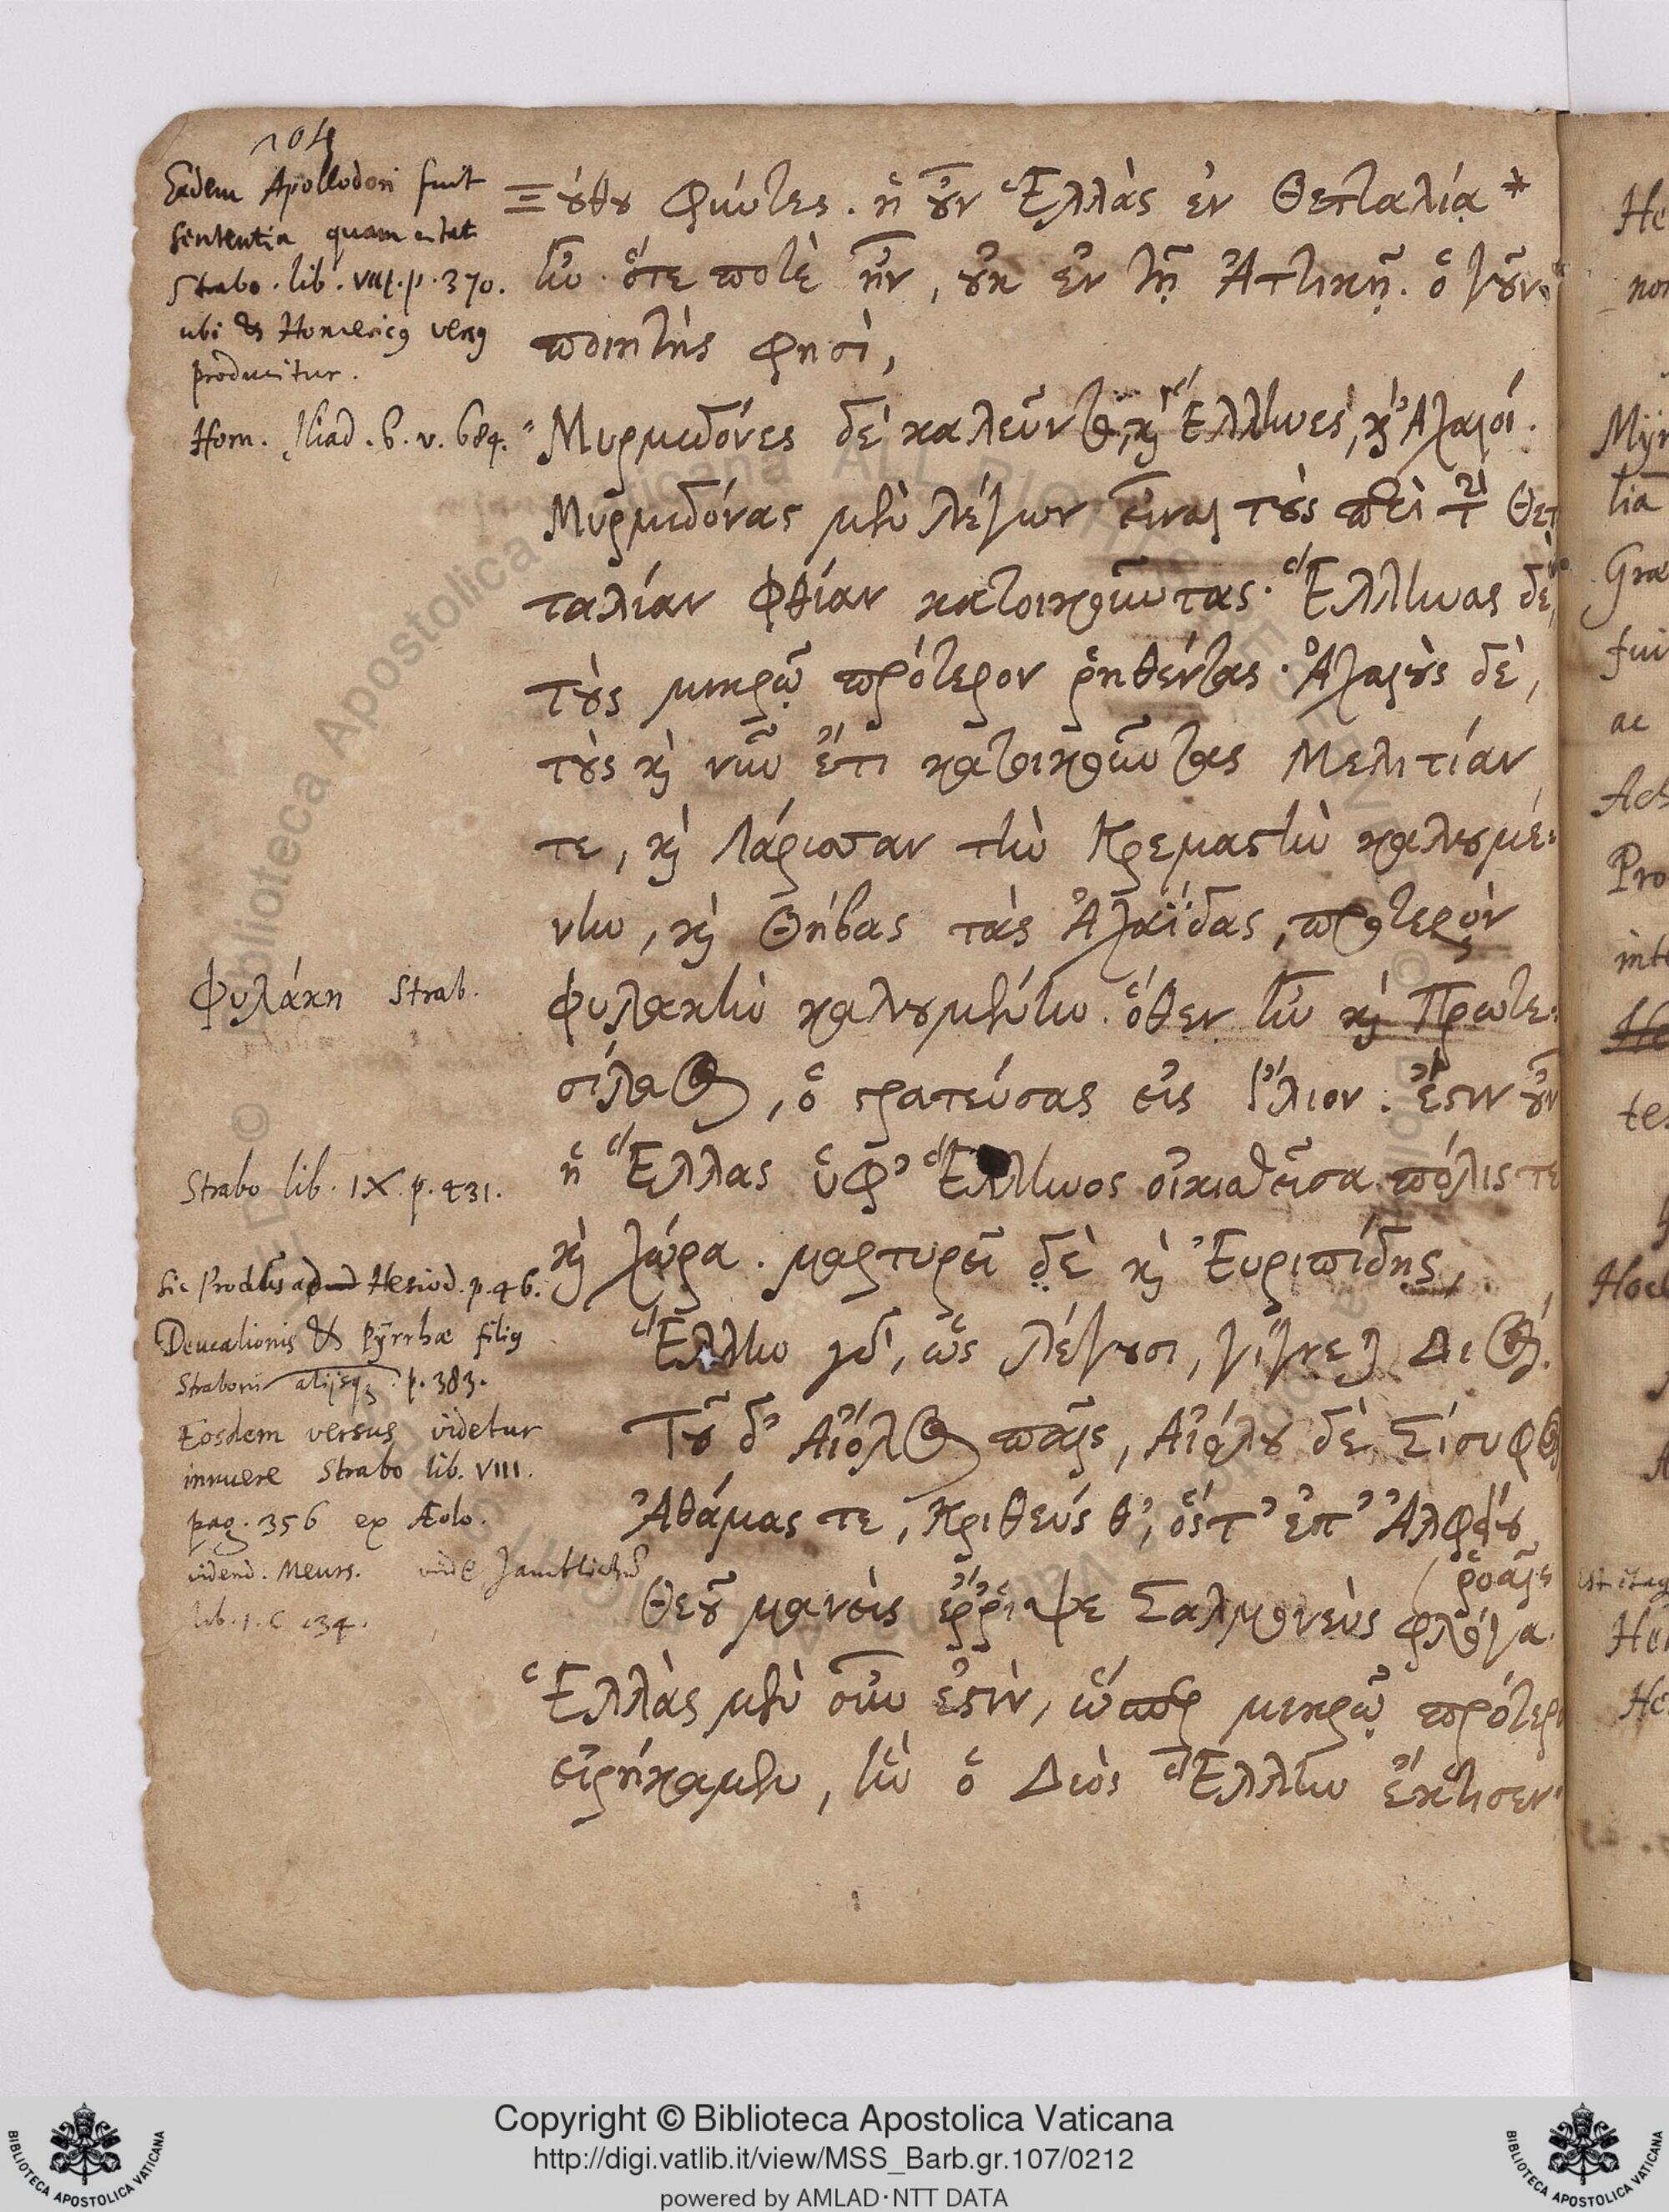 104
Eadem Apollodori fuit
sententia quam citat
Strabo. lib. VIII. p. 370.
ubi & Homericus versus
producitur.
Hom. Iliad. β. v. 684.
Ξούθου φύντες. ἡ οὖν Ἑλλὰς ἐν Θετταλίᾳ *
ἦν ὅτε ποτὲ ἦν, οὐκ ἐν τῇ Ἀττικῇ. ὁ γοῦν
ποιητὴς φησὶ,
"Μυρμιδόνες δὲ καλεῦντο, καὶ Ἕλληνες, καὶ Ἀχαιοί.
Μυρμιδόνας μὲν λέγων εἶναι τοὺς περὶ τὴν Θετ
ταλίαν Φθίαν κατοικοῦντας. Ἕλληνας δὲ,
τοὺς μικρῷ πρότερον ῥηθέντας. Ἀχαιοὺς δὲ,
τοὺς καὶ νῦν ἔτι κατοικοῦντας Μελιτίαν
τε, καὶ Λάρισσαν τὴν Κρεμαστὴν καλουμέ-
νην, καὶ Θήβας τὰς Ἀχαΐδας, πρότερον
Φυλάκη Strab.
φυλακὴν καλουμένην. ὅθεν ἦν καὶ Πρωτε-
σίλαος, ὁ στρατεύσας εἰς Ἴλιον. ἔστιν οὖν
Strabo lib. IX. p. 431.
ἡ Ἕλλας ὑφ' Ἕλληνος οἰκισθεῖσα πόλις τε
καὶ χώρα. μαρτυρεῖ δὲ καὶ Εὐριπίδης,
Sic Proclus ad Hesiod. p. 46.
Deucalionis & Pyrrhæ filius
Straboni alijsque. p. 383.
Eosdem versus videtur
innuere Strabo lib. VIII.
pag. 356 ex Æolo.
vidend. Meurs. vide Jamblichum
lib. 1. c 34.
Ἕλλην γὰρ, ὡς λέγουσι, γίγνεται Διός.
Τοῦ δ' Αἰόλος παῖς, Αἰόλου δὲ Σίσυφος
Ἀθάμας τε, Κριθεύς θ', ὅς τ' ἐπ' Ἀλφειοῦ
ῥοαῖς
Θεοῦ μανεὶς ἔρριψε Σαλμονεὺς φλόγα.
Ἑλλὰς μὲν οὖν ἐστὶν, ὥσπερ μικρῷ πρότερ
εἰρήκαμεν, ἣν ὁ Διὸς Ἕλλην ἔκτισεν
Copyright © Biblioteca Apostolica Vaticana
http://digi.vatlib.it/view/MSS_Barb.gr.107/0212
powered by AMLAD·NTT DATA
BIBLIOTECA APOSTOLICA VATICANA
BIBLIOTECA APOSTOLICA VATICANA